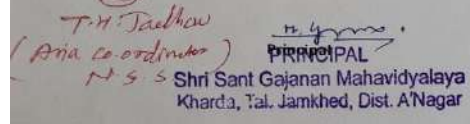 T.H. Jadhav
(Aria co-ordinator)
N S S
PRINCIPAL
Shri Sant Gajanan Mahavidyalaya
Kharda, Tal. Jamkhed, Dist. A'Nagar